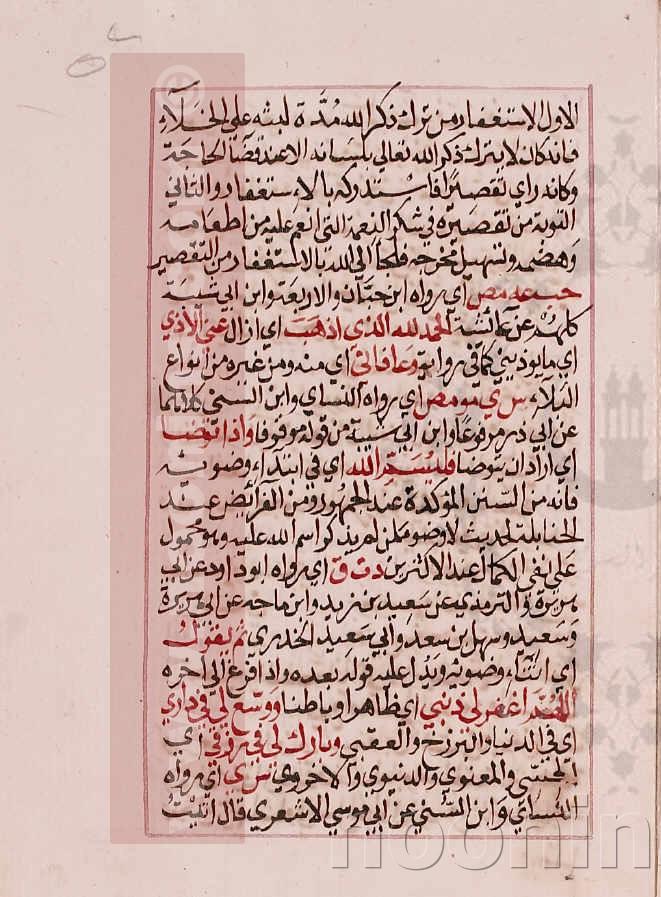 الاول الاستغفار من ترك ذكر الله مدة لبثه على الخلاء
فانه كان لا يترك ذكر الله تعالى بلسانه الا عند قضاء الحاجة
وكانه راي تقصيرا فاستدركه بالاستغفار والثاني
التوبة من تقصيره في شكر النعمة التي انعم عليه من اطعامه
وهضمه وتسهيل مخرجه فلجأ الى الله بالاستغفار من التقصير
حب عه مص اي رواه ابن حبان والاربعة وابن ابي شيبة
كلهم عن عائشة الحمد لله الذي اذهب اي ازال عني الاذي
اي ما يوذيني كما في رواية وعافاني اي منه ومن غيره من انواع
البلاء س ي مو مص اي رواه النساي وابن السني كلاهما
عن ابي ذر مرفوعا وابن ابي شيبة من قوله موقوفا واذا توضا
اي اراد ان يتوضا فليسم الله اي في ابتداء وضوئه
فانه من السنن المؤكدة عند الجمهور ومن الفرائض عند
الحنابلة لحديث لا وضو لمن لم يذكر اسم الله عليه وهو محمول
على نفي الكمال عند الاكثرين د ت ق اي رواه ابو داود عن ابي
هريرة والترمذي عن سعيد بن زيد وابن ماجه عن ابي هريرة
وسعيد وسهل بن سعد وابي سعيد الخدري ثم يقول
اي اثناء وضوئه ويدل عليه قوله بعده واذا فرغ الى اخره
اللهم اغفر لي ذنبي اي ظاهرا وباطنا ووسع لي في داري
اي في الدنيا والبرزخ والعقبي وبارك لي في رزقي اي
الحسي والمعنوي والدنيوي والاخروي س ي اي رواه
النساي وابن السني عن ابي موسي الاشعري قال اتيت
noormin